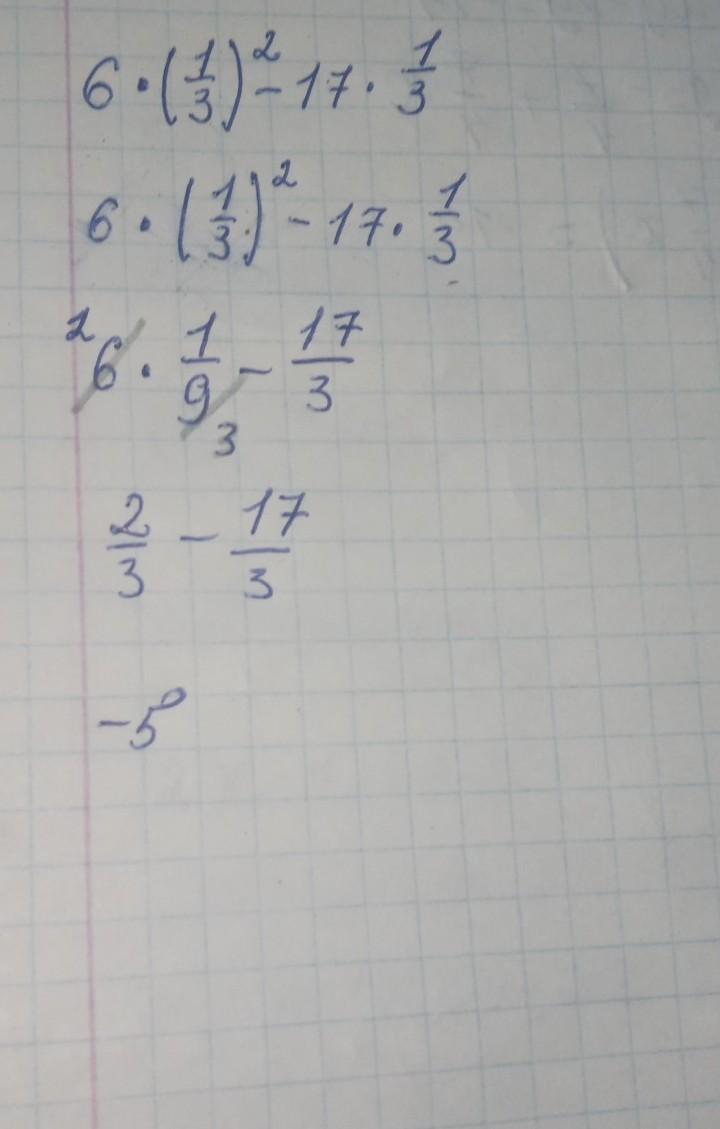 6 · (1/3)² - 17 · 1/3
6 · (1/3)² - 17 · 1/3
²6 · 1/9 3 - 17/3
2/3 - 17/3
-5